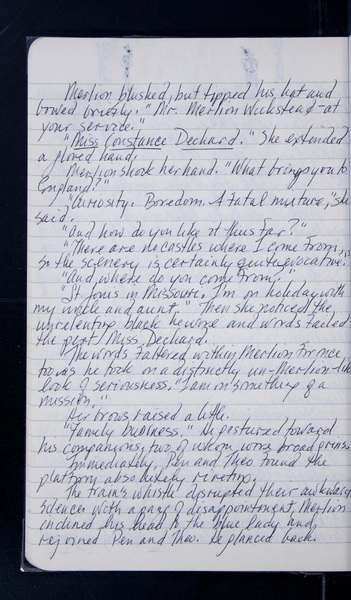 Merlion blushed, but tipped his hat and
bowed briefly. "Mr. Merlion Wickstead - at
your service."
"Miss Constance Dechard." She extended
a gloved hand.
Merlion shook her hand. "What brings you to
England?"
"Curiosity. Boredom. A fatal mixture," she
said.
"And how do you like it thus far?"
"There are no castles where I come from,
so the scenery is certainly quite evocative."
"And where do you come from?"
"St. Louis in Missouri. I'm on holiday with
my uncle and aunt." Then she noticed the
unrelenting black he wore and words failed
the pert Miss Dechard.
The words faltered within Merlion for once
too as he took on a distinctly un-Merlion-like
look of seriousness. "I am on something of a
mission."
Her brows raised a little.
"Family business." He gestured toward
his companions, two of whom wore broad grins.
Immediately, Pen and Theo found the
platform absolutely riveting.
The train's whistle disrupted their awkward
silence. With a gaze of disappointment, Merlion
inclined his head to the blue lady and
rejoined Pen and Theo. He glanced back.